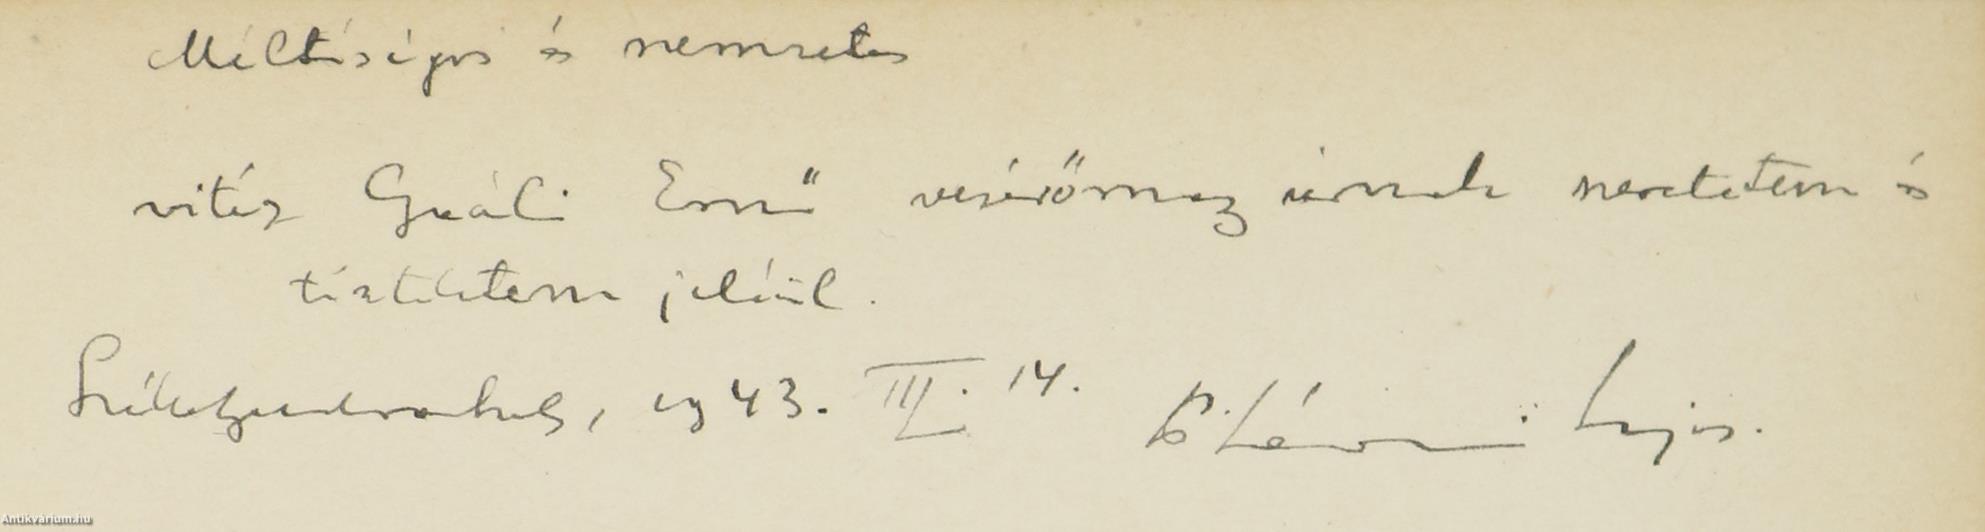 Méltóságos és nemzetes
vitéz Gyáli Ernő vezérőrnagy úrnak szeretetem és
tiszteletem jeléül.
Székelyudvarhely, 1943. III. 14. Lajos.
Antikvárium.hu